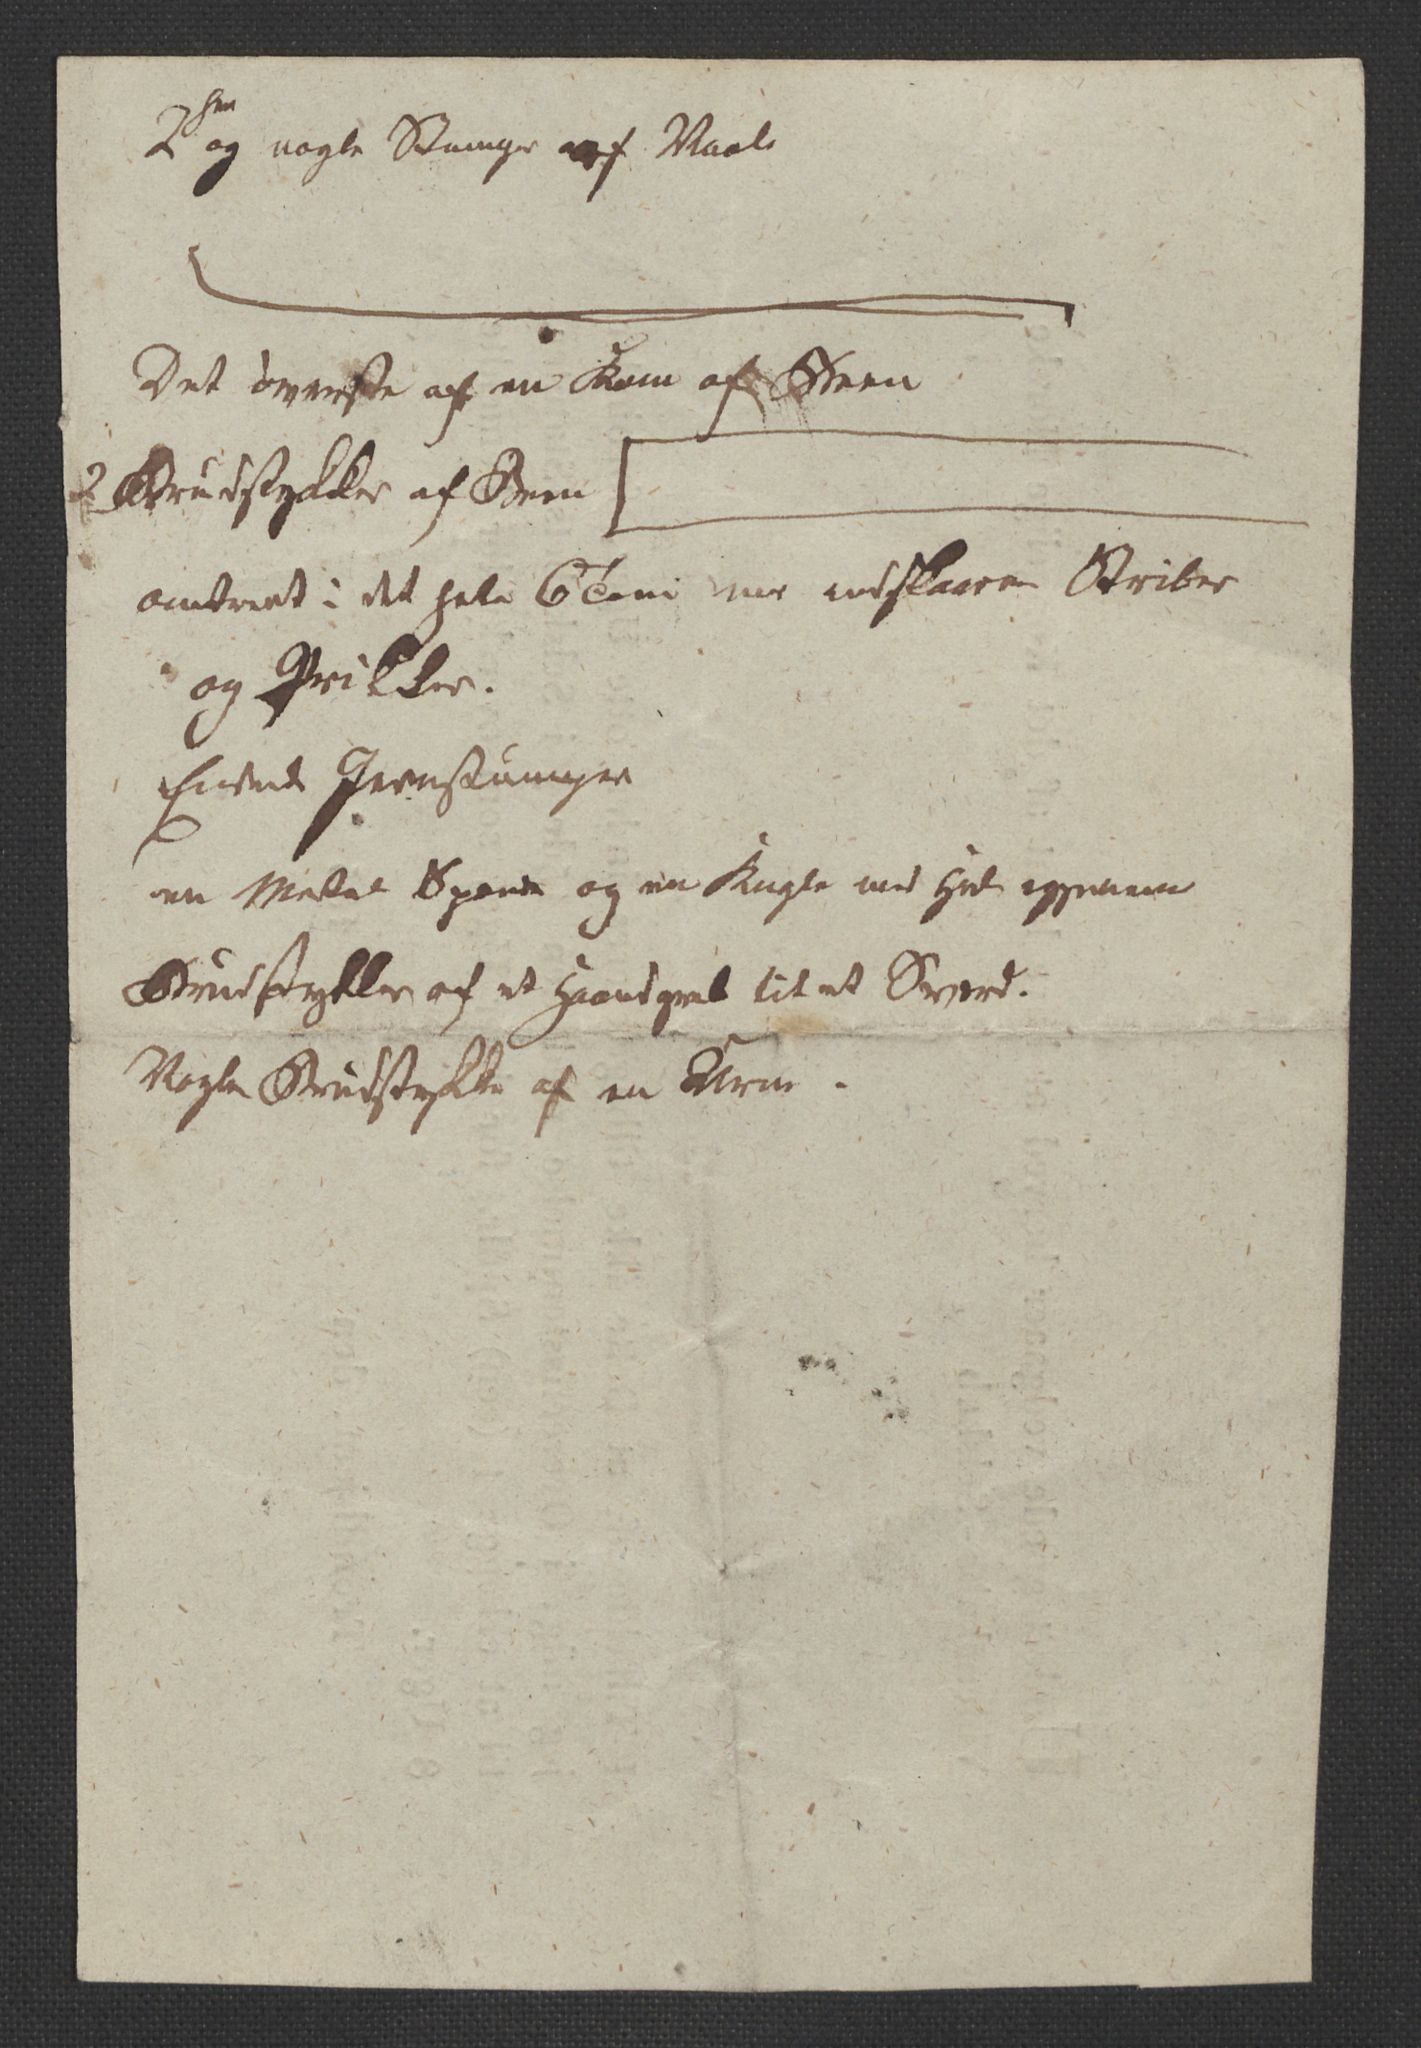 2 og nogle Stumper af Naale
Det øverste af en Kam af Been
2 Brudstykker af Been
omtrent i det hele 6 Tom med indskaarne Striber
og Prikker.
Endeel Jernstumper
en Metal Spænde og en Kugle med Hul igjennem
Brudstykker af et Haandgreb til et Sværd.
Nogle Brudstykke af en Urne.